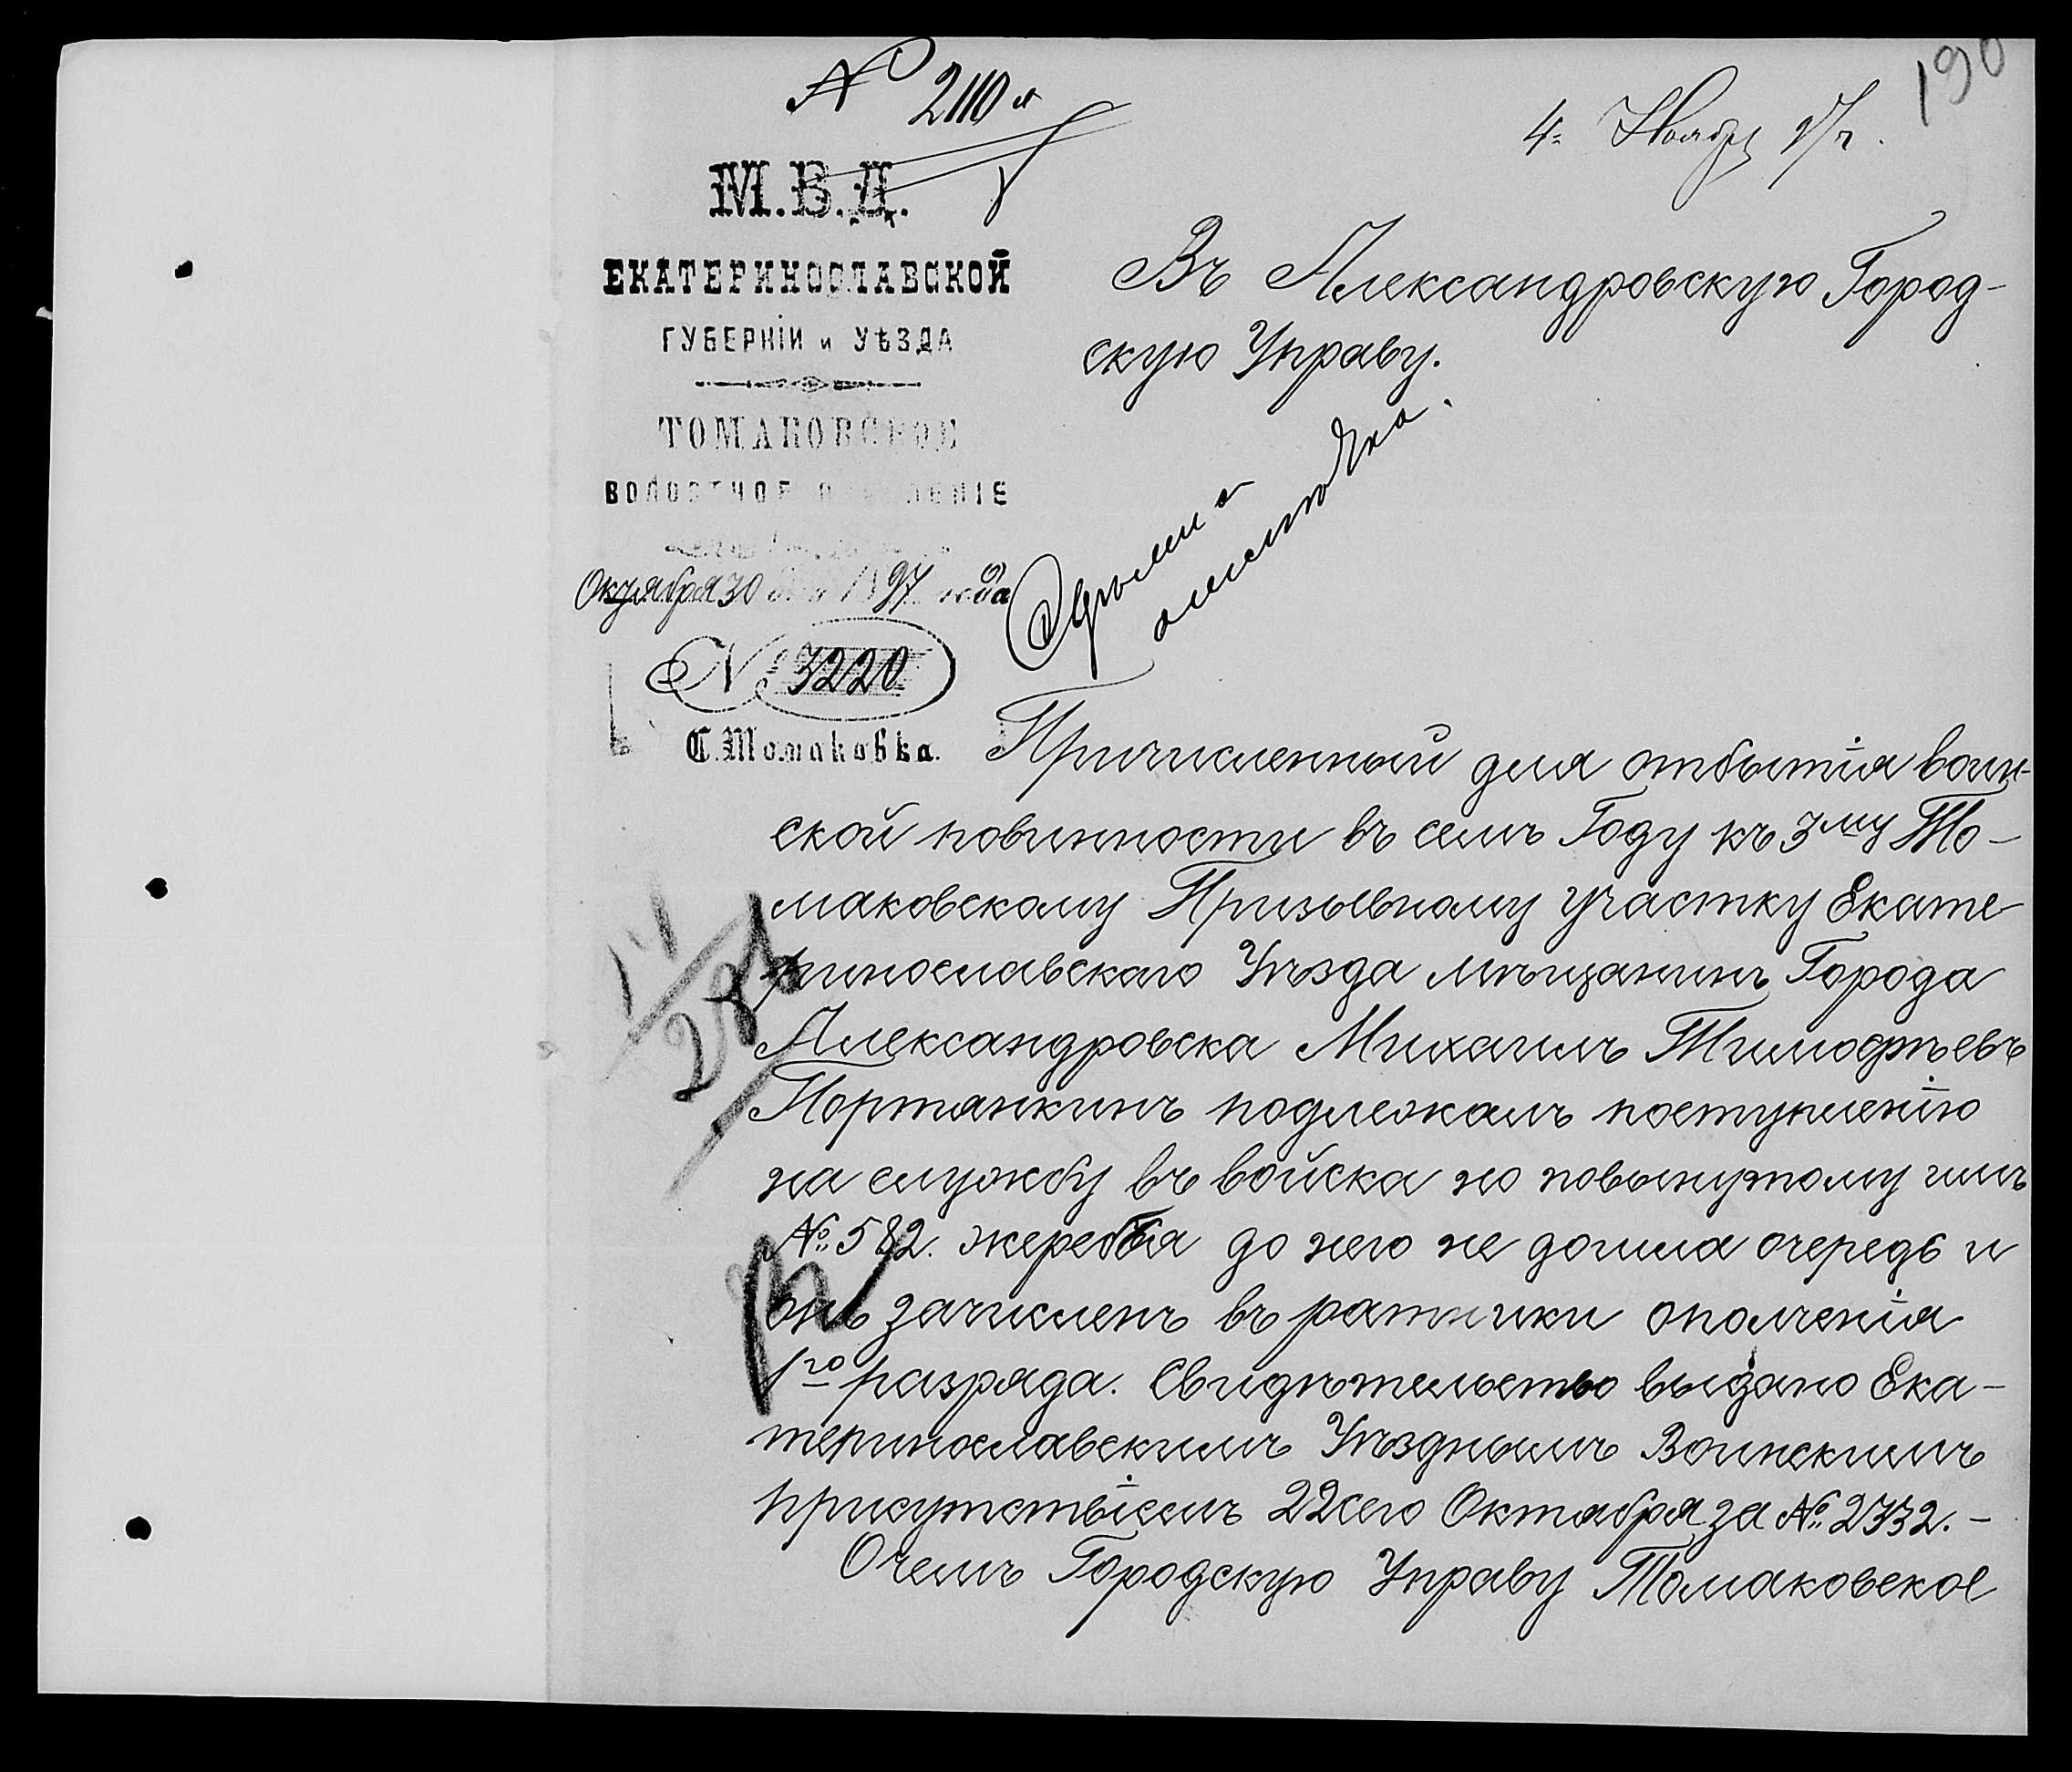 190
№ 2110
4 Ноября 97 г.
М.В.Д.
ЕКАТЕРИНОСЛАВСКОЙ
ГУБЕРНІИ и УѢЗДА
ТОМАКОВСКОЕ
ВОЛОСТНОЕ ПРАВЛЕНІЕ
Октября 30 дня 1897 года
№ 3220
С. Томаковка.
Въ Александровскую Город-
скую Управу.
Причисленный для отбытія воин-
ской повинности въ семъ Году къ 3му То-
маковскому Призывному участку Екате
ринославскаго Уѣзда мѣщанинъ Города
Александровска Михаилъ Тимофѣевъ
Портянкинъ подлежалъ поступленію
на службу въ войска но повынутому имъ
№ 582. жеребья до него не дошла очередь и
онъ зачисленъ въ ратники ополченія
1го разряда. Свидѣтельство выдано Ека-
теринославскимъ Уѣзднымъ Воинскимъ
присутствіемъ 22 сего Октября за № 2732. -
Очемъ Городскую Управу Томаковское